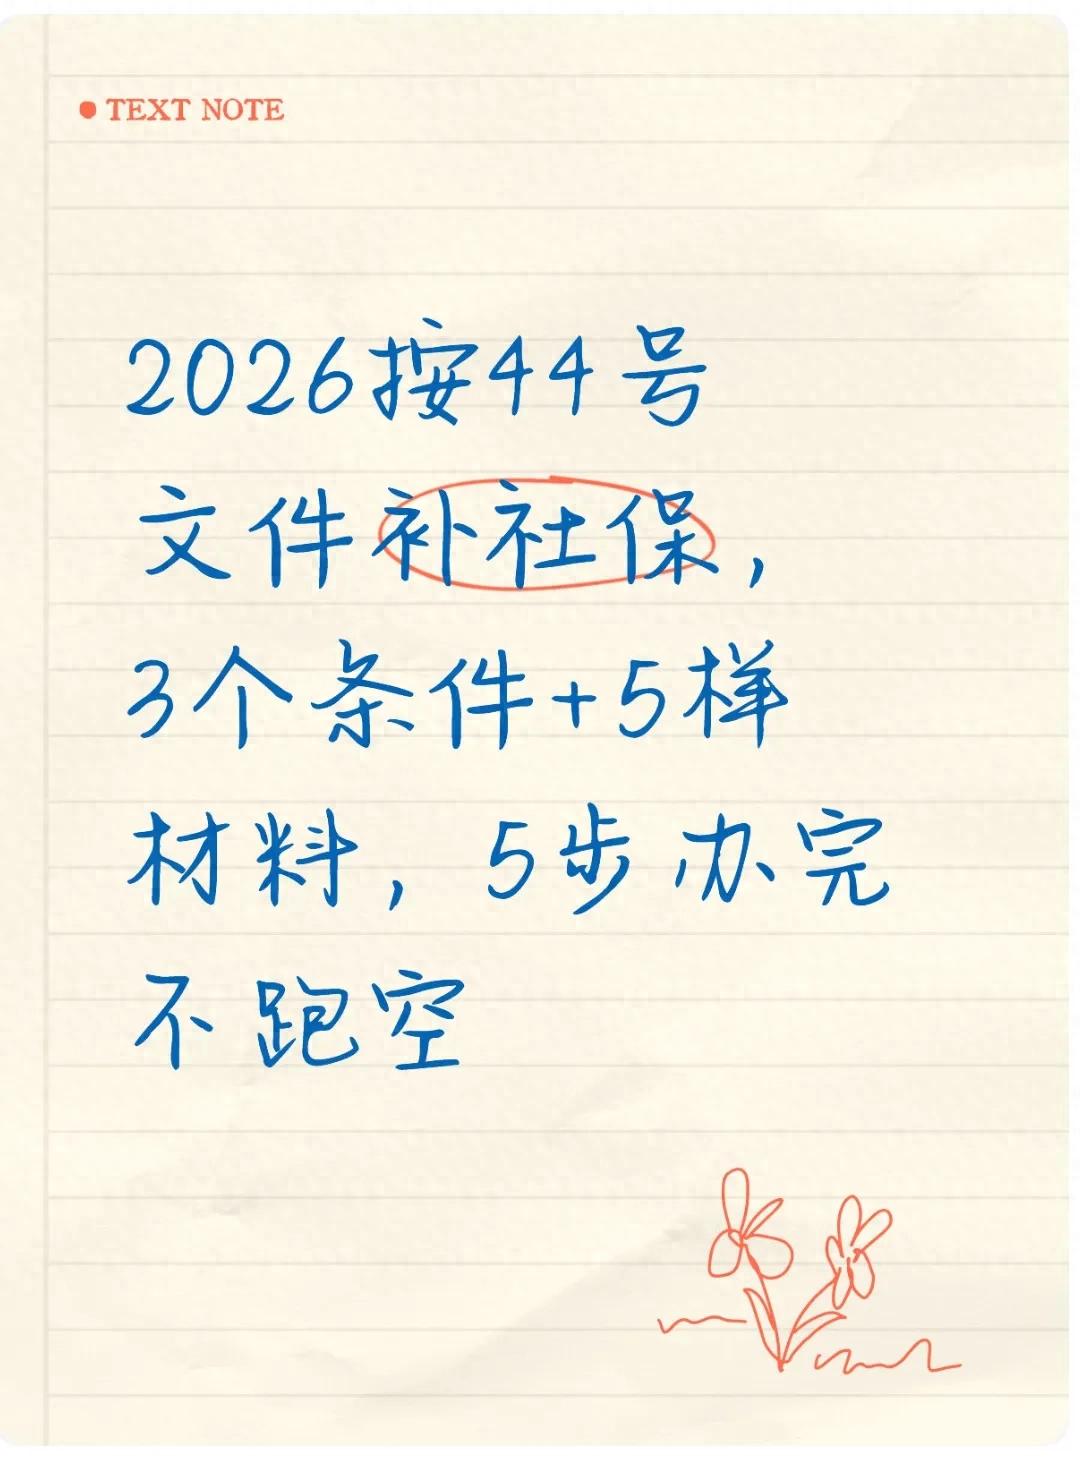 TEXT NOTE
2026按44号
文件补社保，
3个条件+5样
材料，5步办完
不跑空